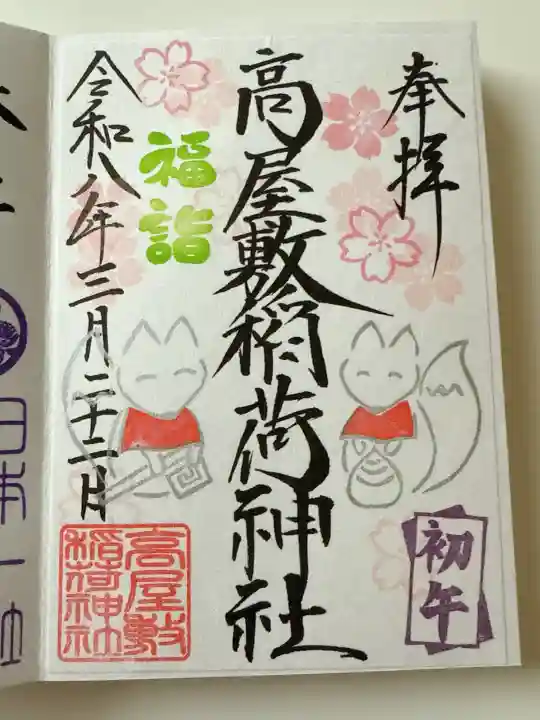 奉拝
高屋敷稲荷神社
福詣
令和八年三月二十二日
初午
高屋敷
稲荷神社